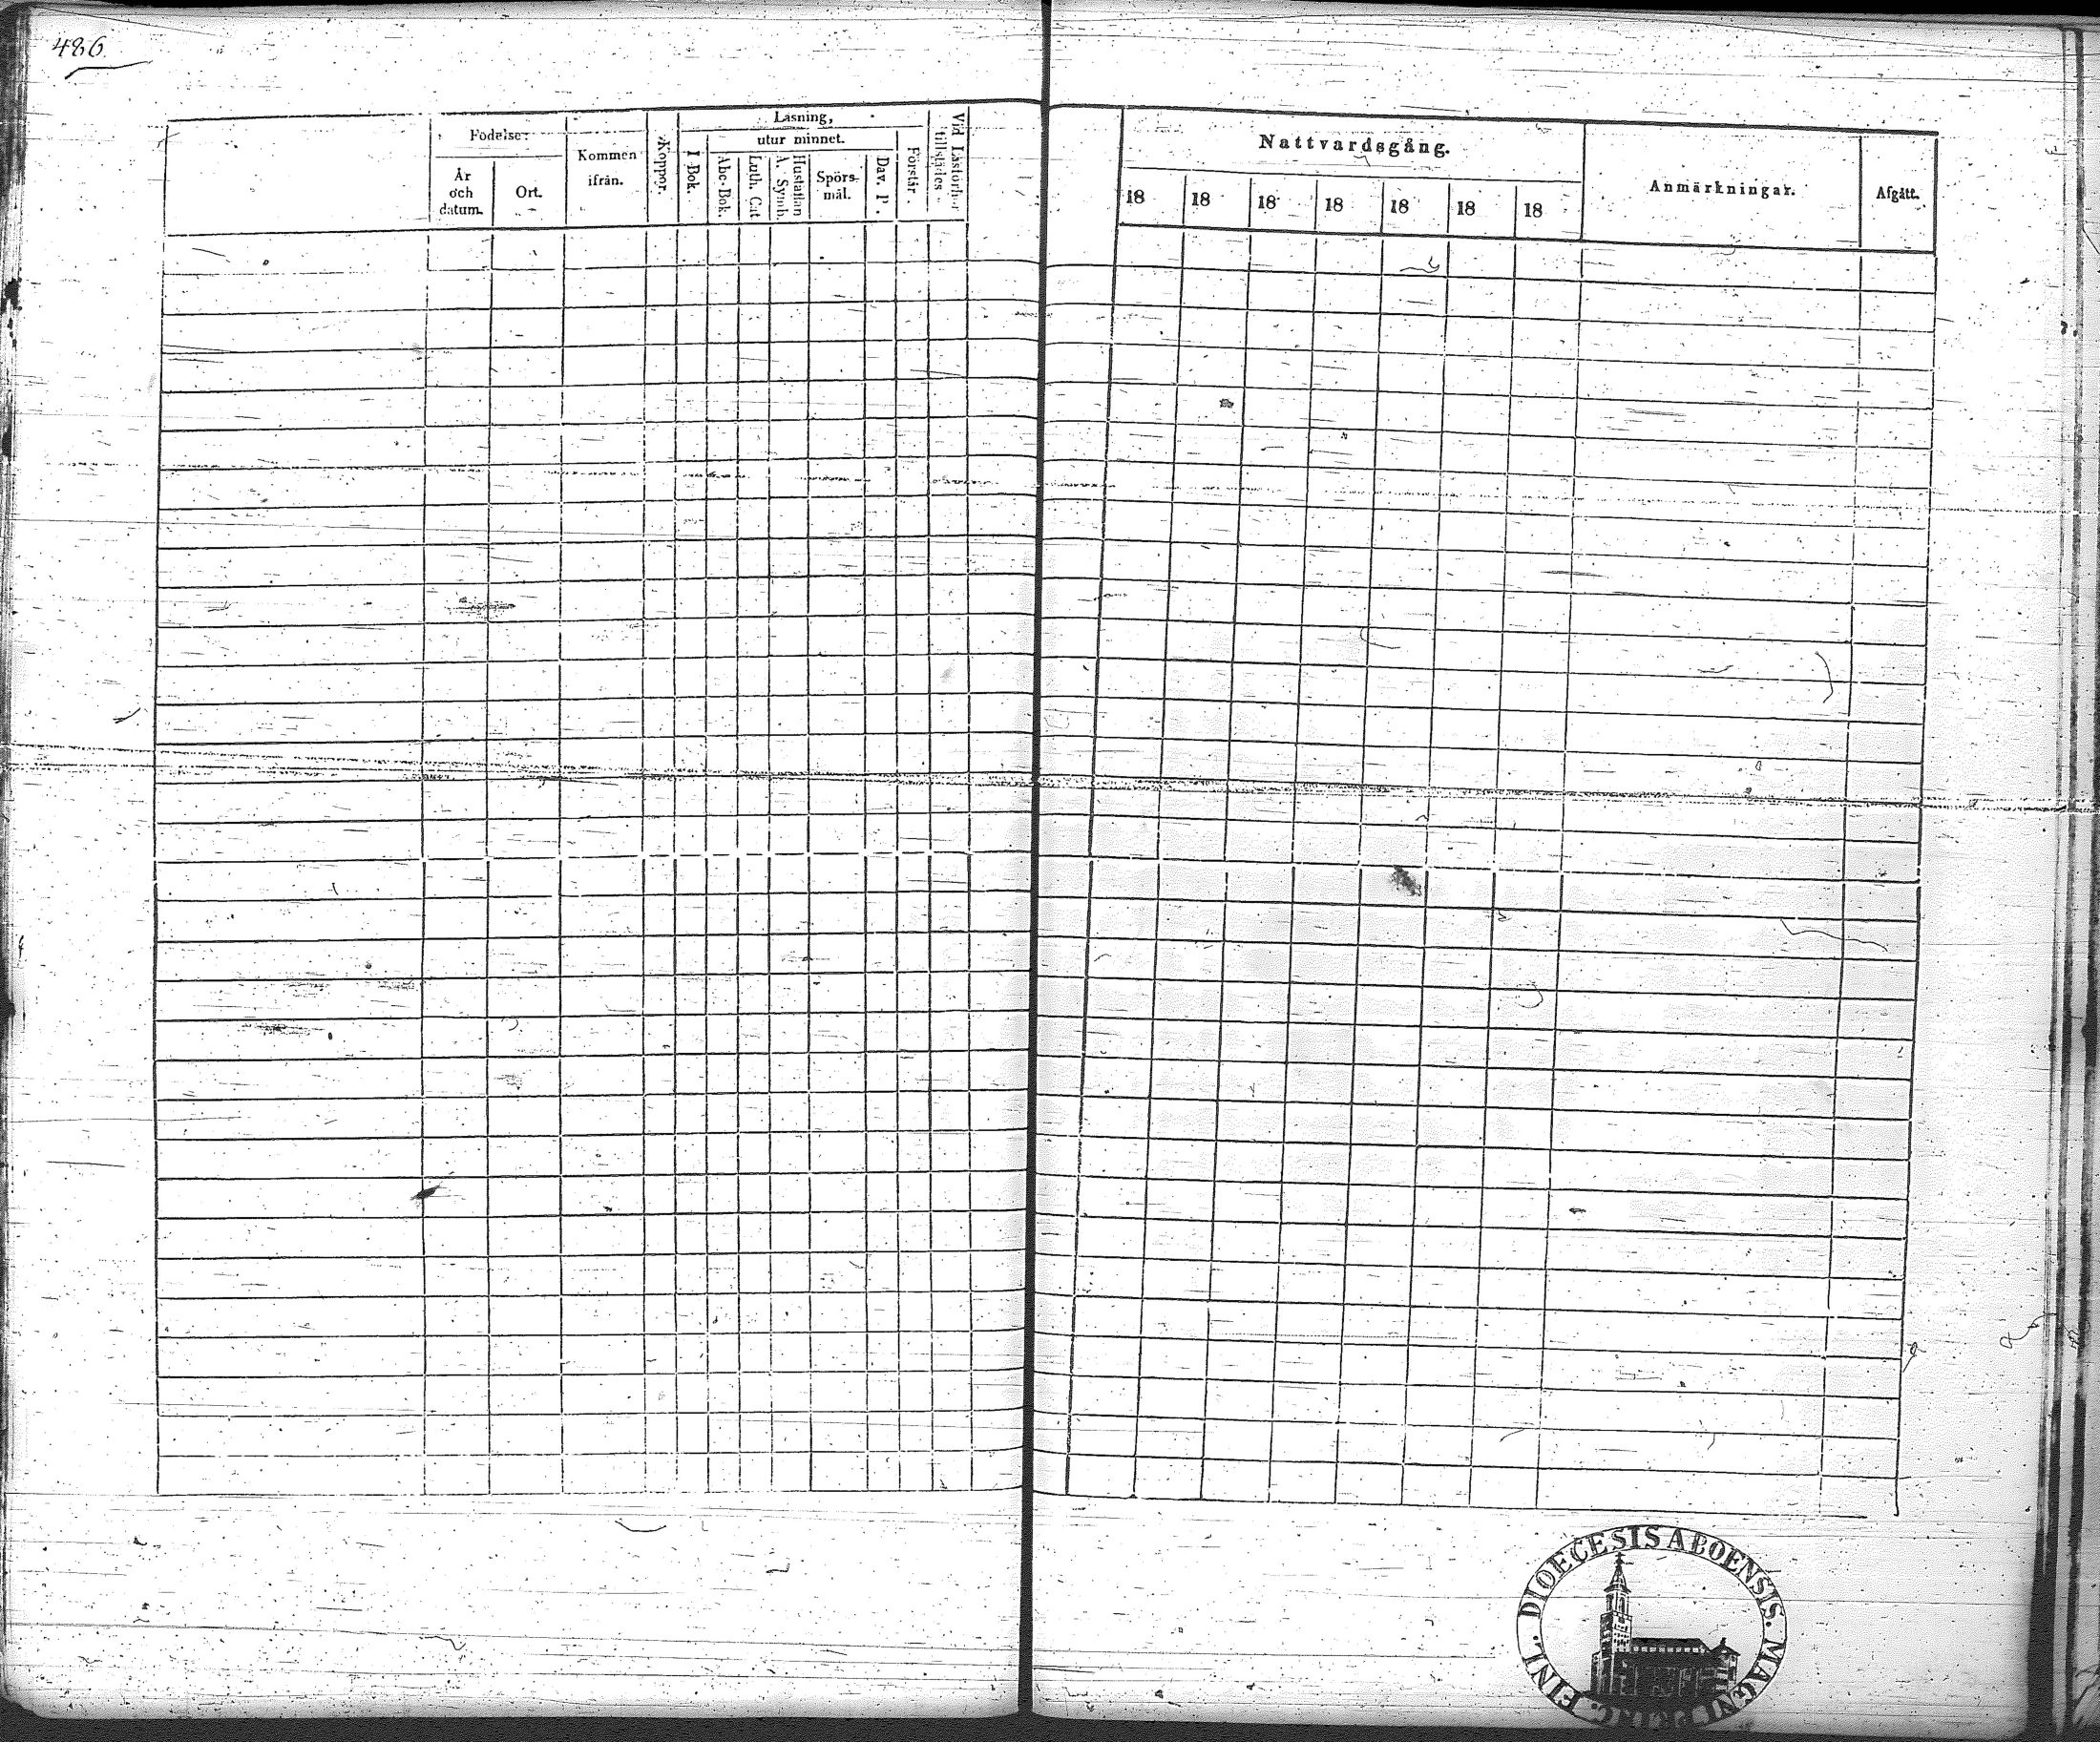 486.
Födelse:
År
och
datum.
Ort.
Kommen
ifrån.
Koppor.
Läsning,
utur minnet.
I Bok.
Abc-Bok.
Luth. Cat
Hustaflan
A. Symb.
Spörs-
mål.
Dav. P.
Förstår.
Vid Läsförhör
tillstädes
Nattvardsgång.
18 18 18 18 18 18 18
Anmärkningar.
Afgått.
DIOECESIS ABOENSIS. MAGNI PRINC. FINL.